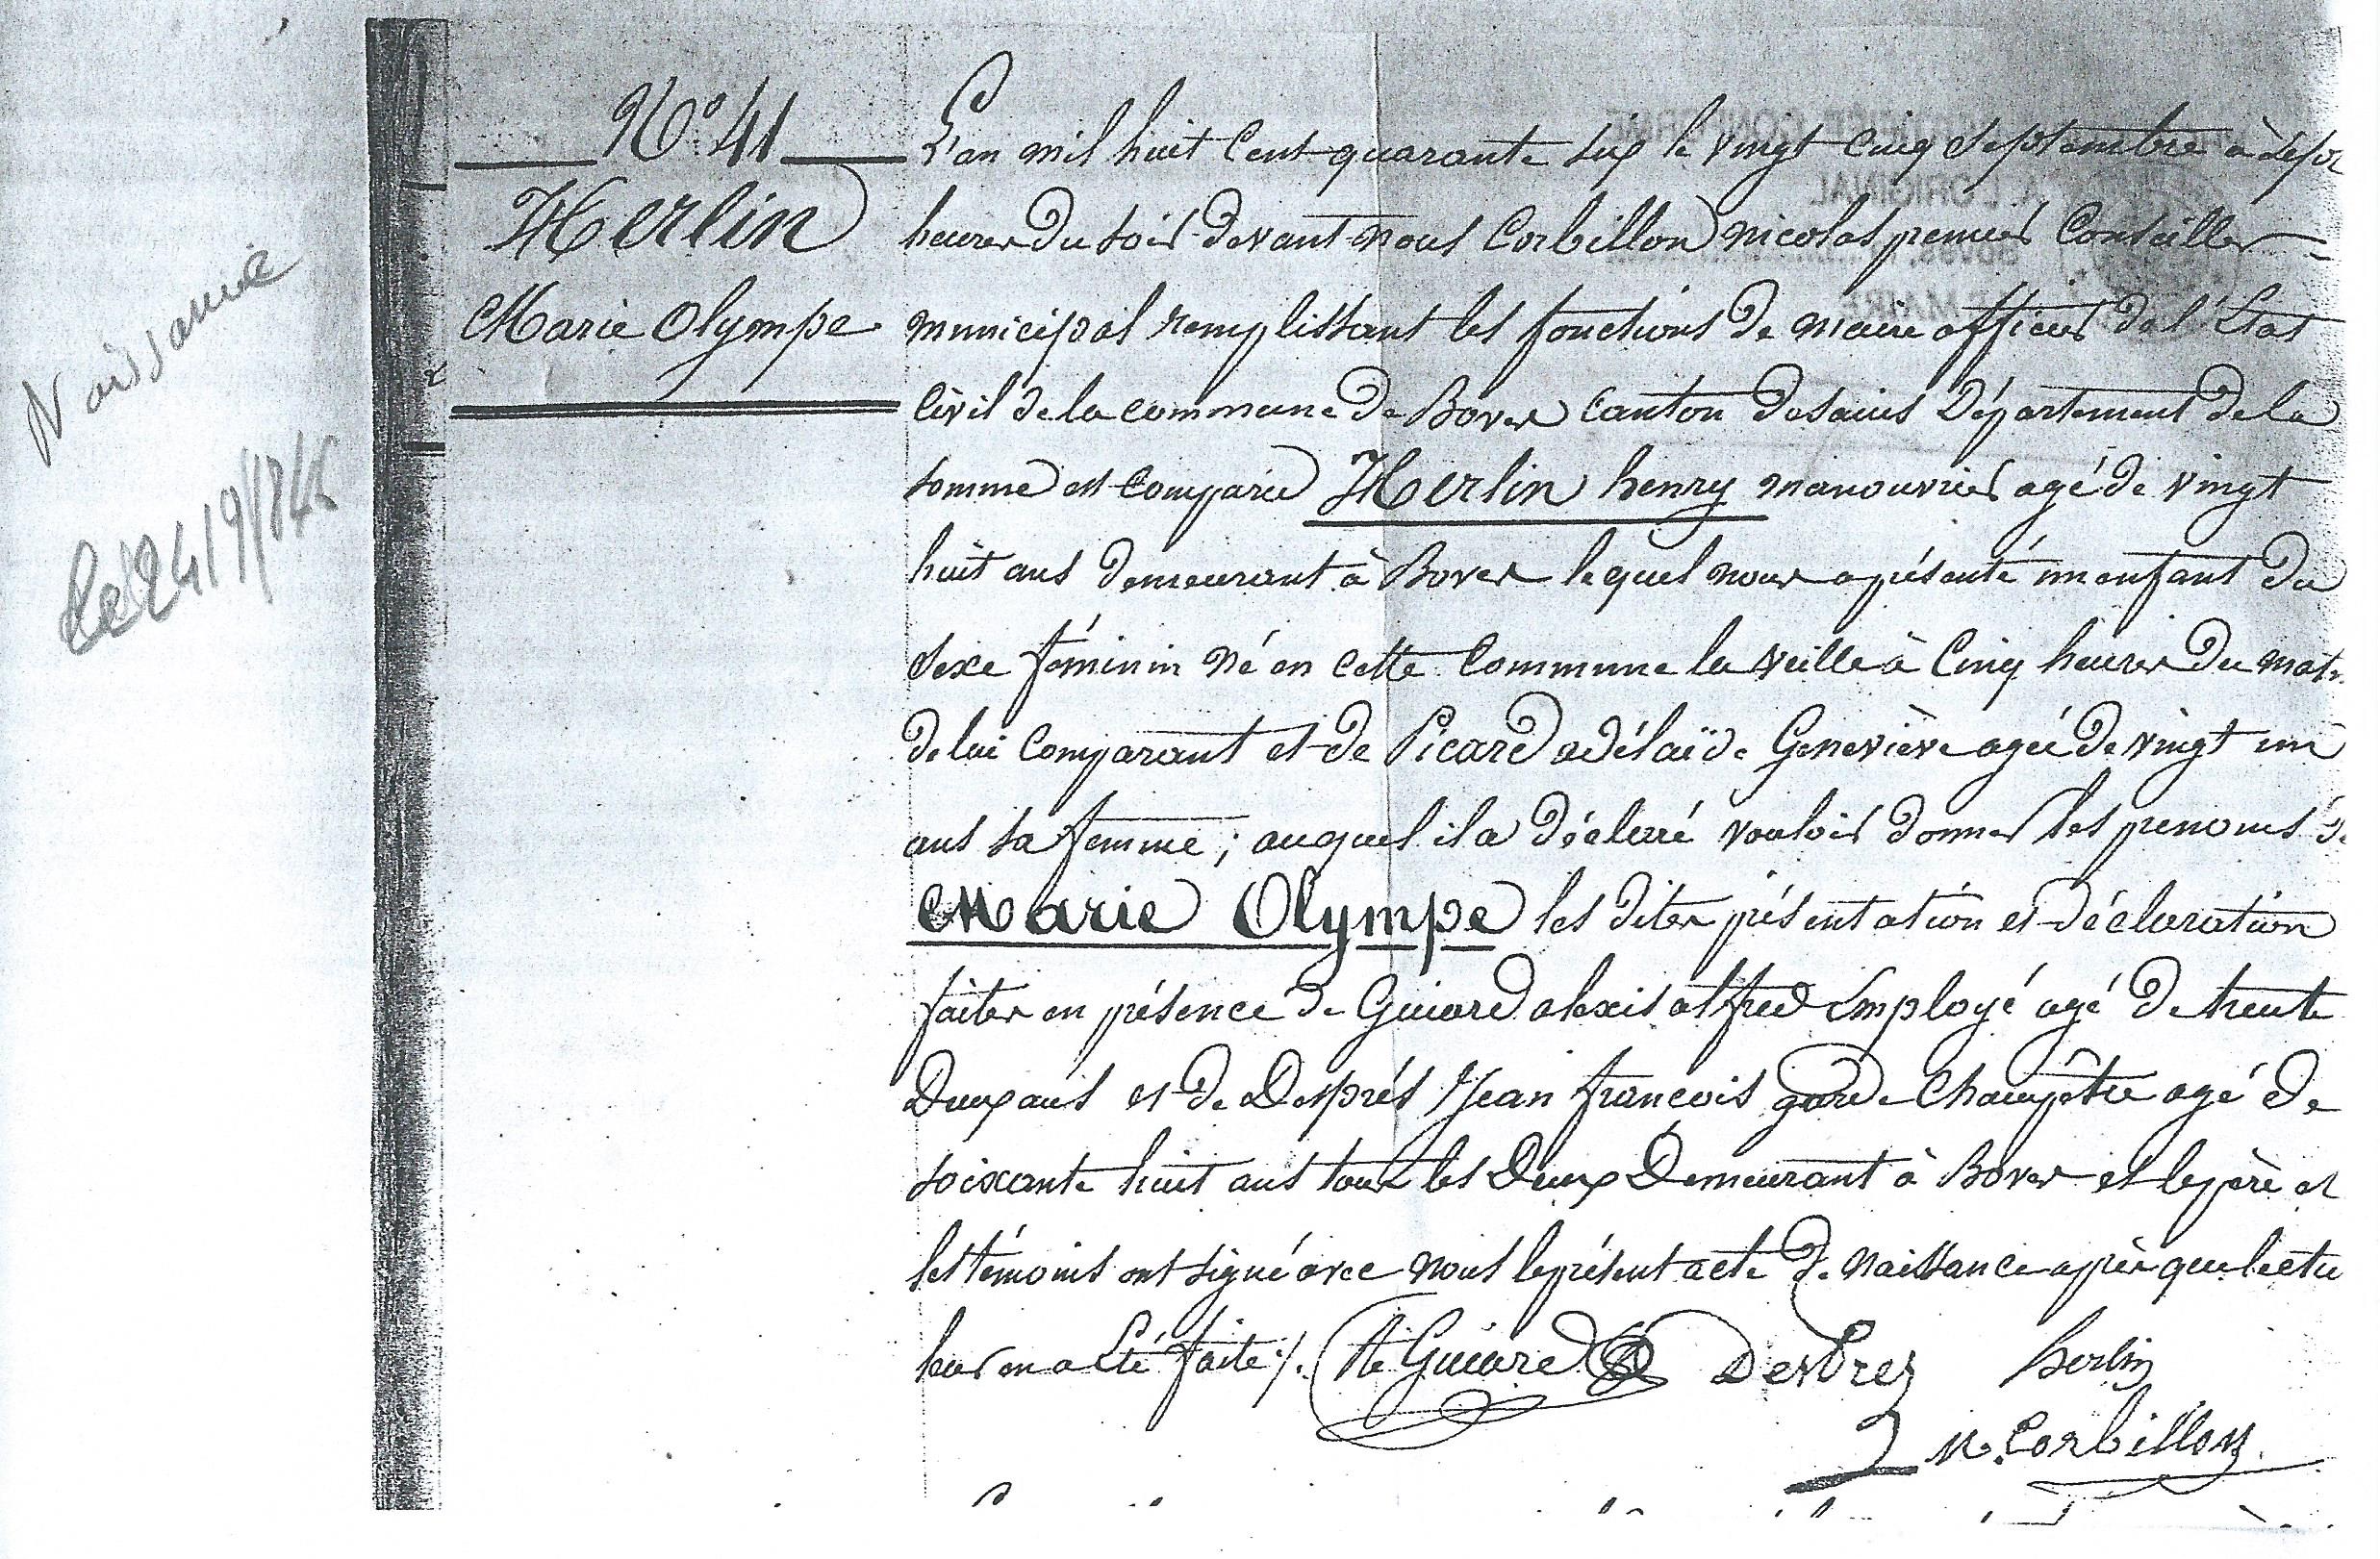 Naissance
le 24/9/1846
N° 41
Herlin
Marie Olympe
L'an mil huit cent quarante six le vingt cinq septembre à sept
heures du soir devant nous Corbillon nicolas premier Conseiller
municipal remplissant les fonctions de maire officier de l'état
Civil de la commune de Boves canton de sains Département de la
somme est comparu Herlin henry manouvrier agé de vingt
huit ans demeurant à Boves lequel nous a présenté un enfant du
sexe féminin né en cette commune la veille à cinq heures du matin
de lui comparant et de Picard adélaïde Geneviève agée de vingt un
ans sa femme ; auquel il a déclaré vouloir donner les prenoms de
Marie Olympe les dites présentation et déclaration
faites en présence de Guiard alexis alfred Employé agé de trente
Deux ans et de Després Jean françois garde Champêtre agé de
soixante huit ans tous les Deux Demeurant à Boves et le père et
les témoins ont signé avec nous le présent acte de naissance après que lecture
leur en a été faite ./.
Guiard Desprez herlin
N. Corbillon
CERTIFIÉE CONFORME
A L'ORIGINAL
BOVES,
LE MAIRE